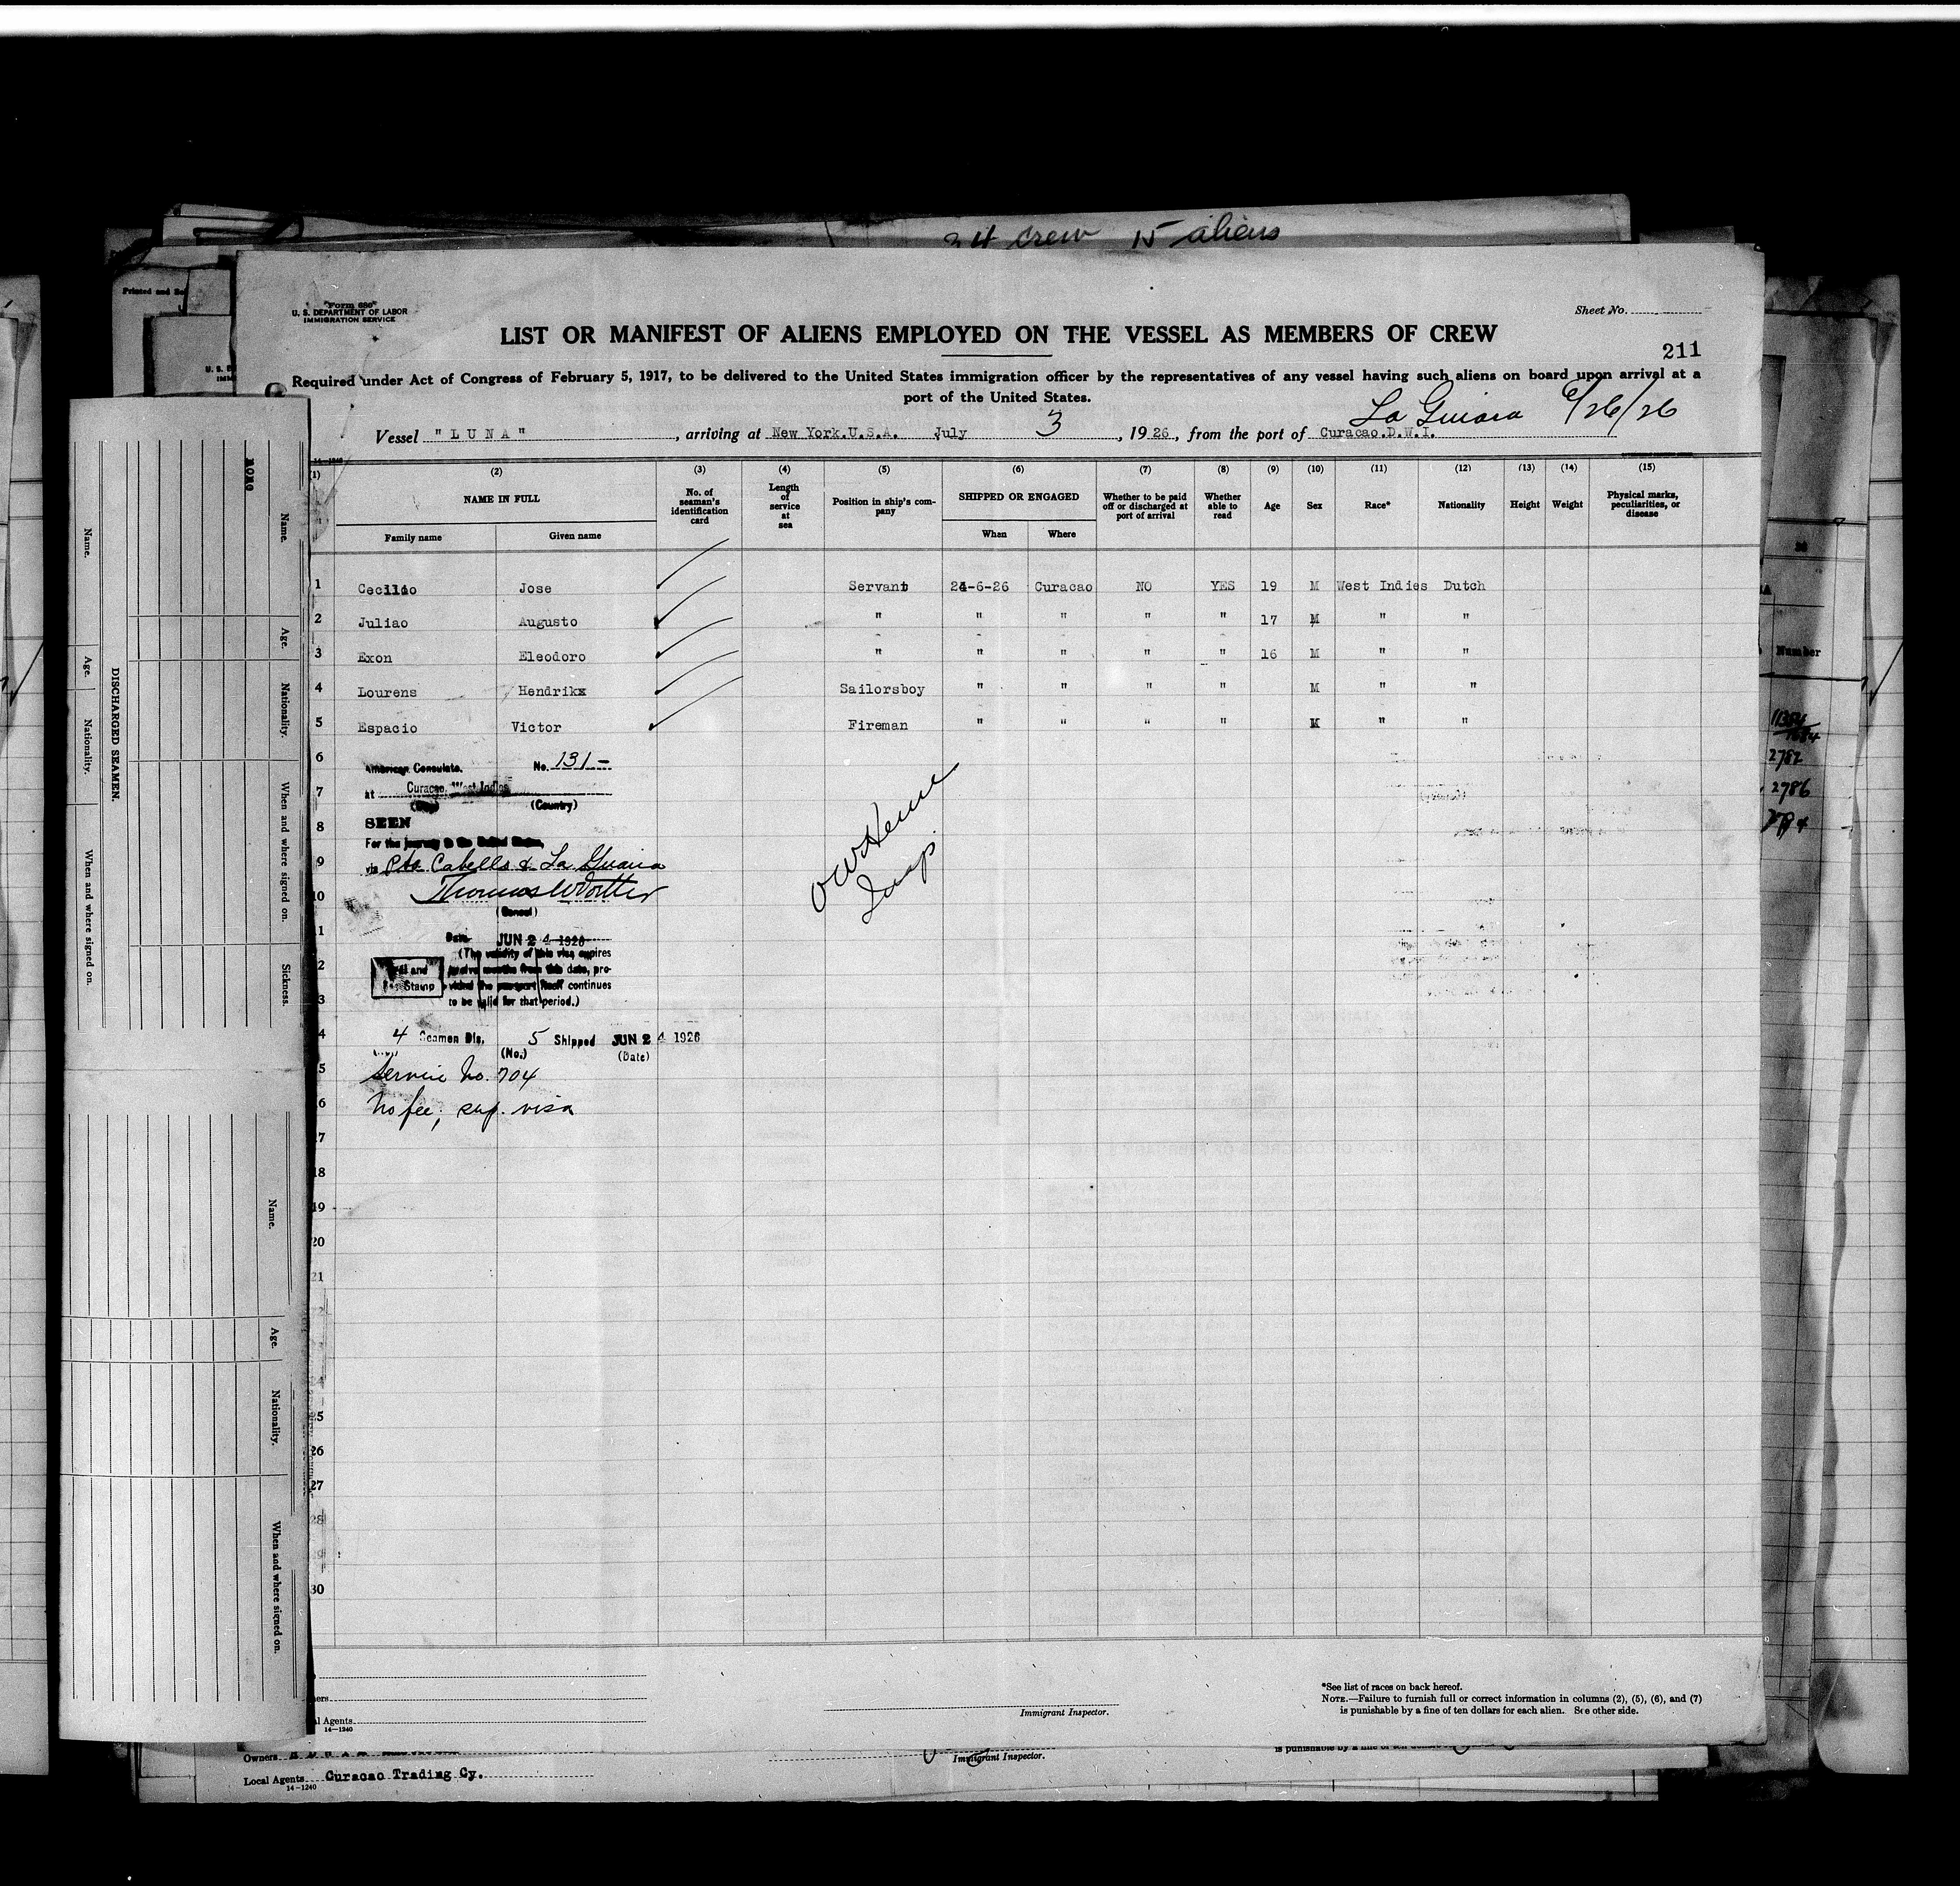 34 crew 15 aliens
Printed and
Form 680
U. S. DEPARTMENT OF LABOR
IMMIGRATION SERVICE
Sheet No.
LIST OR MANIFEST OF ALIENS EMPLOYED ON THE VESSEL AS MEMBERS OF CREW
211
Required under Act of Congress of February 5, 1917, to be delivered to the United States immigration officer by the representatives of any vessel having such aliens on board upon arrival at a
port of the United States.
La Guiara 6/26/26
Vessel "LUNA", arriving at New York.U.S.A. July 3, 1926, from the port of Curacao.D.W.I.
14-1240
(1) (2) (3) (4) (5) (6) (7) (8) (9) (10) (11) (12) (13) (14) (15)
NAME IN FULL
Family name Given name
No. of seaman's identification card
Length of service at sea
Position in ship's company
SHIPPED OR ENGAGED
When Where
Whether to be paid off or discharged at port of arrival
Whether able to read
Age Sex Race* Nationality Height Weight
Physical marks, peculiarities, or disease
1 Cecilio Jose Servant 24-6-26 Curacao NO YES 19 M West Indies Dutch
2 Juliao Augusto " " " " " 17 M " "
3 Exon Eleodoro " " " " " 16 M " "
4 Lourens Hendrikx Sailorsboy " " " " M " "
5 Espacio Victor Fireman " " " " M " "
6 American Consulate. No. 131-
7 at Curacao, West Indies
(City) (Country)
8 SEEN
For the journey to the United States,
9 via Pto Cabello & La Guaira
10
(Consul)
Date JUN 24 1926
(The validity of this visa expires
twelve months from this date, pro-
vided the passport itself continues
to be valid for that period.)
Stamp
4 Seamen Dis. 5 Shipped JUN 24 1926
(No.) (Date)
Service No. 704
No fee, sup. visa
17
18
19
20
21
25
26
27
28
30
Insp
DISCHARGED SEAMEN.
Name. Age. Nationality. When and where signed on. Sickness.
Name. Age. Nationality. When and where signed on.
Name. Age. Nationality. When and where signed on.
Number
2782
2786
Agents
14-1240
Immigrant Inspector.
*See list of races on back hereof.
NOTE.—Failure to furnish full or correct information in columns (2), (5), (6), and (7)
is punishable by a fine of ten dollars for each alien. See other side.
Owners
Immigrant Inspector.
Local Agents Curacao Trading Cy.
14-1240